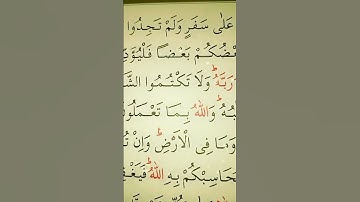 عَلٰى سَفَرٍ وَلَمْ تَجِدُوا
بَعْضُكُمْ بَعْضاً فَلْيُؤَدِّ
رَبَّهُۜ وَلَا تَكْتُمُوا الشَّ
وَاللّٰهُ بِمَا تَعْمَلُونَ
وَمَا فِي الْاَرْضِۜ وَاِنْ تُ
يُحَاسِبْكُمْ بِهِ اللّٰهُۜ فَيَغْفِ